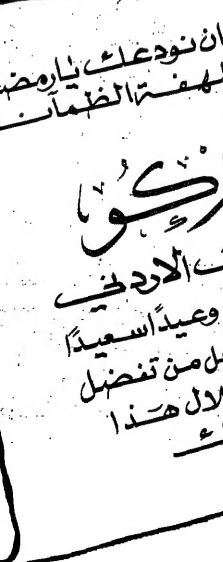 ان نودعك يارمضـ
لهفة الظمآن
ـ الاردني
وعيداً سعيداً
ـل من تفضل
ـلال هذا